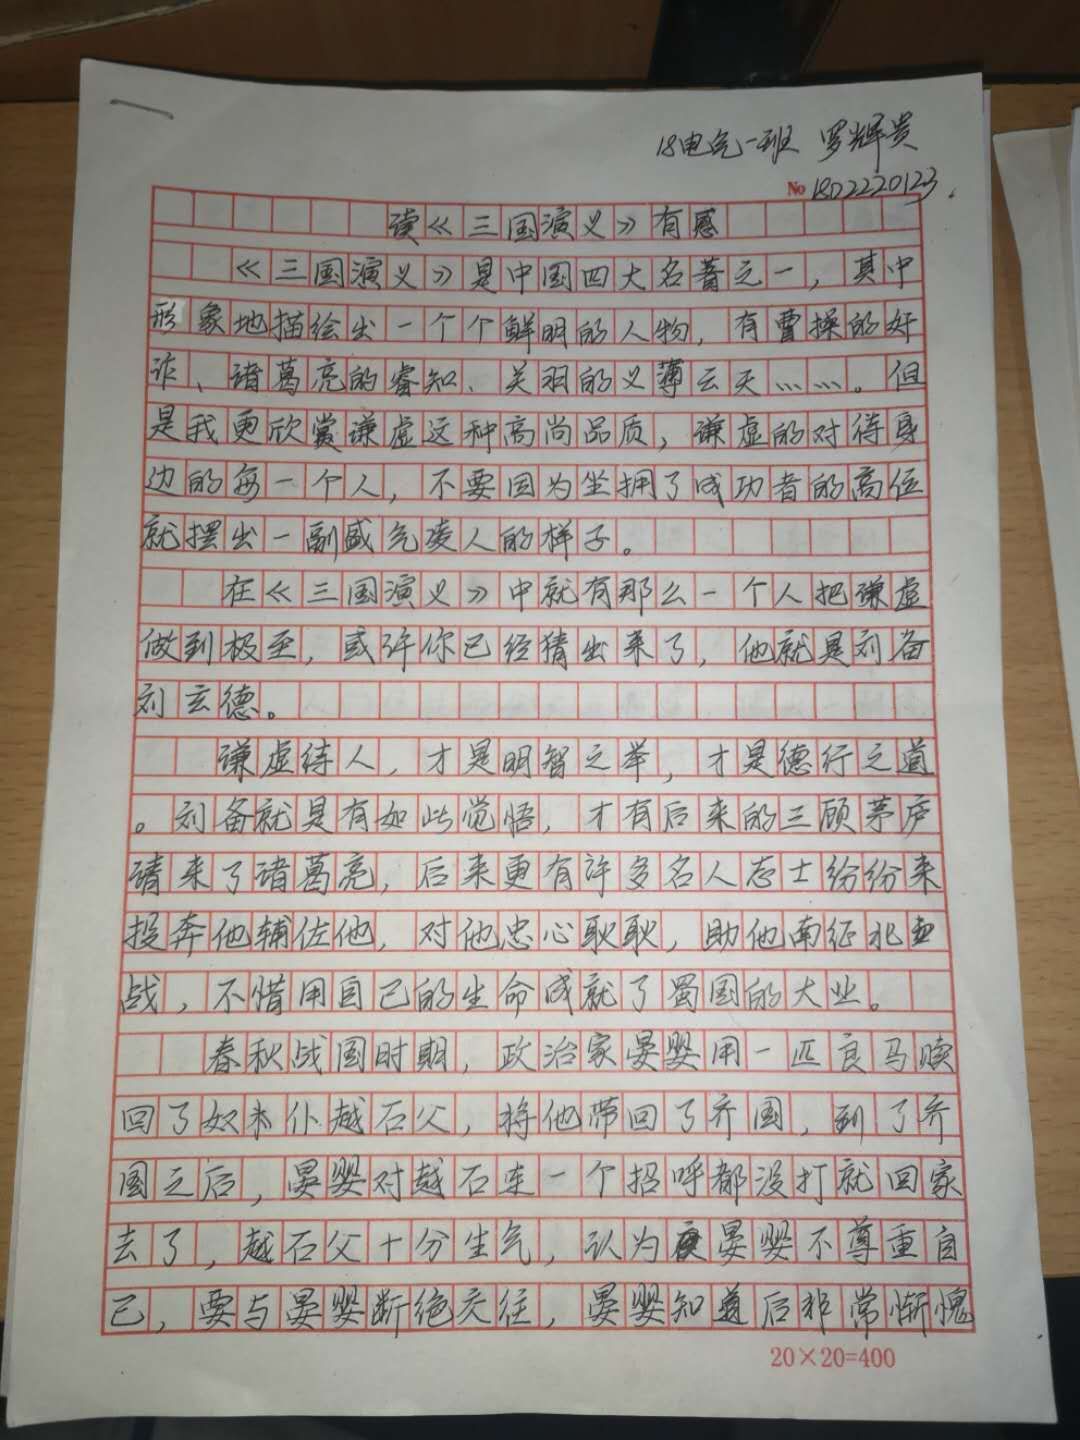 18电气一班 罗辉贵
No 1802220123.
读《三国演义》有感
《三国演义》是中国四大名著之一，其中
形象地描绘出一个个鲜明的人物，有曹操的奸
诈、诸葛亮的睿知、关羽的义薄云天……。但
是我更欣赏谦虚这种高尚品质，谦虚的对待身
边的每一个人，不要因为坐拥了成功者的高位
就摆出一副盛气凌人的样子。
在《三国演义》中就有那么一个人把谦虚
做到极至，或许你已经猜出来了，他就是刘备
刘玄德。
谦虚待人，才是明智之举，才是德行之道
。刘备就是有如此觉悟，才有后来的三顾茅庐
请来了诸葛亮，后来更有许多名人志士纷纷来
投奔他辅佐他，对他忠心耿耿，助他南征北
战，不惜用自己的生命成就了蜀国的大业。
春秋战国时期，政治家晏婴用一匹良马赎
回了奴仆越石父，将他带回了齐国，到了齐
国之后，晏婴对越石连一个招呼都没打就回家
去了，越石父十分生气，认为晏婴不尊重自
己，要与晏婴断绝交往，晏婴知道后非常惭愧
20×20=400